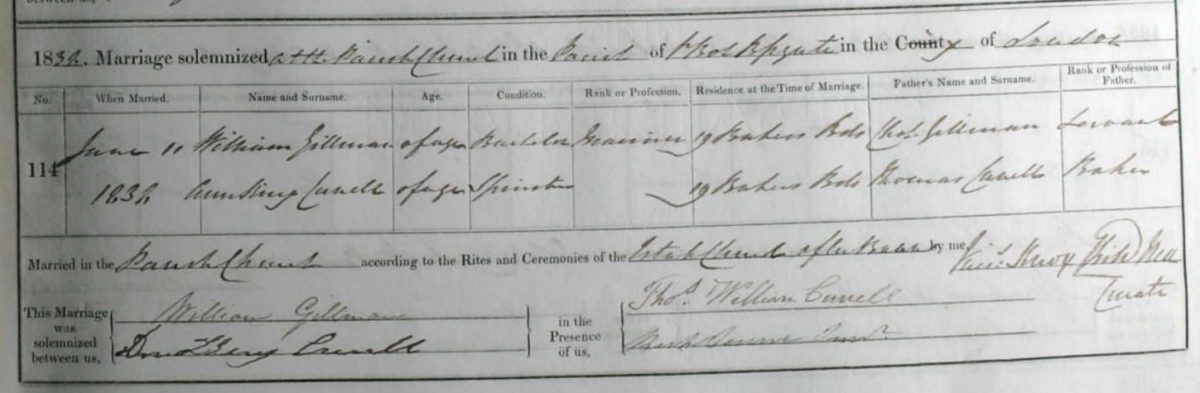 1838. Marriage solemnized at the Parish Church in the Parish of St Bot Bpgate in the County of London
No. When Married. Name and Surname. Age. Condition. Rank or Profession. Residence at the Time of Marriage. Father's Name and Surname. Rank or Profession of Father.
114 June 11 William Gillman of age Bachelor Mariner 19 Bakers Bds Thos. Gillman Servant
1838 of age Spinster 19 Bakers Bds Thomas Baker
Married in the Parish Church according to the Rites and Ceremonies of the Estab Church after Banns by me
Curate
This Marriage was solemnized between us, William Gillman in the Presence of us, Thos. William